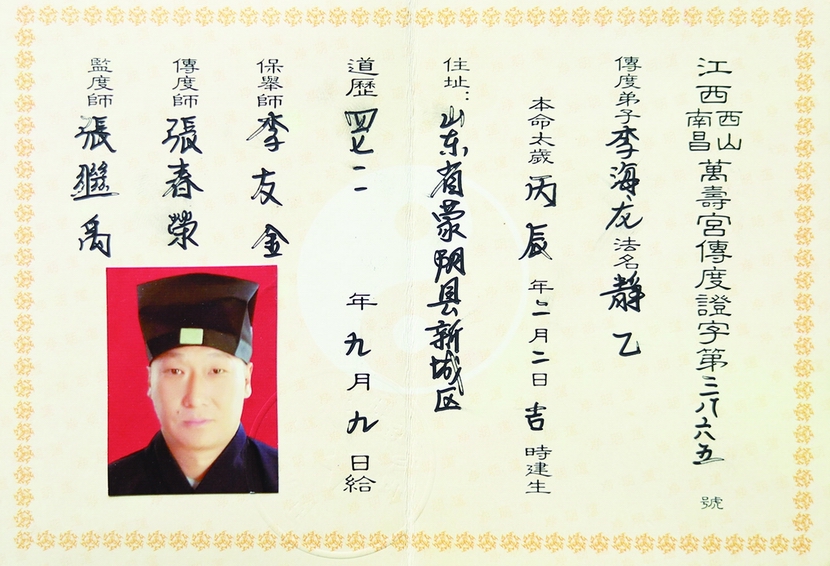 江西南昌西山萬壽宮傳度證字第號
傳度弟子李海龙法名靜乙
本命太歲丙辰年二月二日吉時建生
住址：山东省蒙阴县新城区
道歷四七一一年九月九日給
保舉師李友金
傳度師張春榮
監度師張繼禹